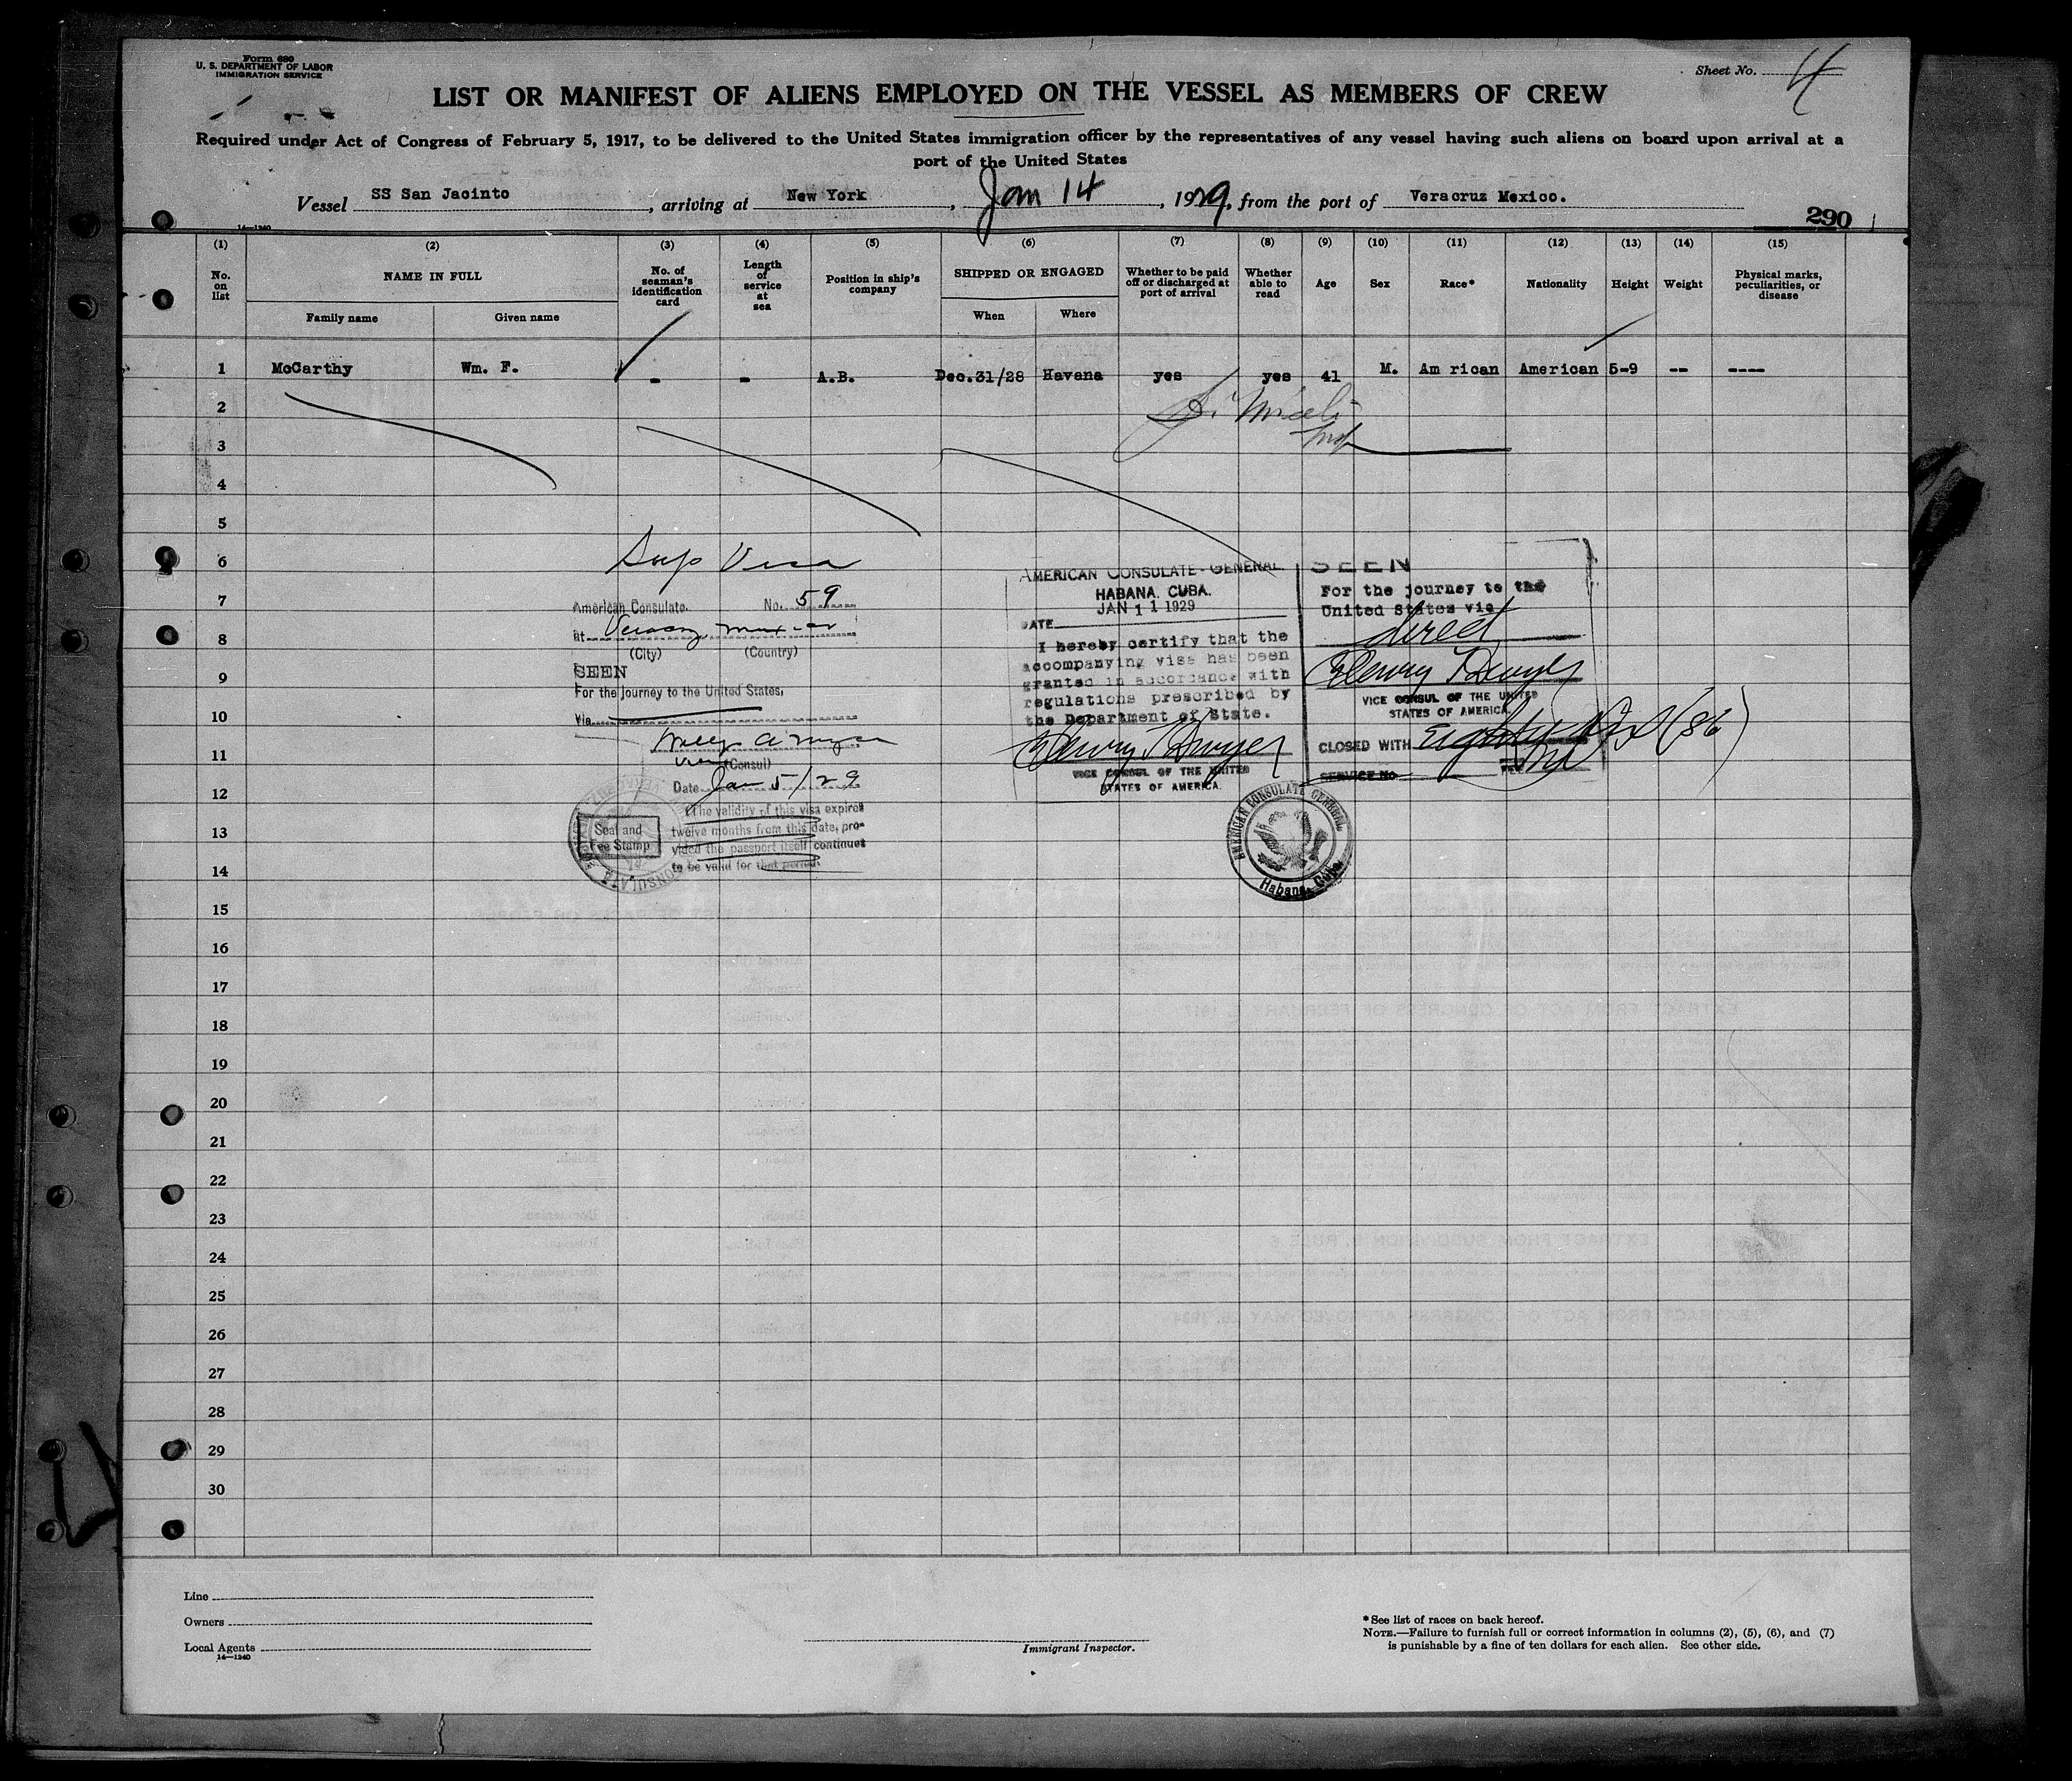 Form 680
U. S. DEPARTMENT OF LABOR
IMMIGRATION SERVICE
Sheet No. 4
LIST OR MANIFEST OF ALIENS EMPLOYED ON THE VESSEL AS MEMBERS OF CREW
Required under Act of Congress of February 5, 1917, to be delivered to the United States immigration officer by the representatives of any vessel having such aliens on board upon arrival at a
port of the United States
Vessel SS San Jacinto, arriving at New York, Jan 14, 1929, from the port of Veracruz Mexico.
14—1240
290
(1) (2) (3) (4) (5) (6) (7) (8) (9) (10) (11) (12) (13) (14) (15)
No. on list
NAME IN FULL
Family name
Given name
No. of seaman's identification card
Length of service at sea
Position in ship's company
SHIPPED OR ENGAGED
When
Where
Whether to be paid off or discharged at port of arrival
Whether able to read
Age
Sex
Race*
Nationality
Height
Weight
Physical marks, peculiarities, or disease
1 McCarthy Wm. F. - - A.B. Dec.31/28 Havana yes yes 41 M. Am rican American 5-9 -- ----
2
3
4
5
6
7
8
9
10
11
12
13
14
15
16
17
18
19
20
21
22
23
24
25
26
27
28
29
30
Sup Visa
American Consulate. No. 59
at
(City) (Country)
SEEN
For the journey to the United States.
Via
(Consul)
Date Jan 5/29
(The validity of this visa expires
twelve months from this date, pro-
vided the passport itself continues
to be valid for that period.
Seal and
Fee Stamp
AMERICAN CONSULATE-GENERAL.
HABANA. CUBA.
JAN 11 1929
DATE
I hereby certify that the
accompanying visa has been
granted in accordance with
regulations prescribed by
the Department of State.
Henry T Dwyer
VICE CONSUL OF THE UNITED
STATES OF AMERICA.
SEEN
For the journey to the
United States via
direct
Henry T Dwyer
VICE CONSUL OF THE UNITED
STATES OF AMERICA.
CLOSED WITH (86)
SERVICE No.
AMERICAN CONSULATE GENERAL
Habana, Cuba.
Line
Owners
Local Agents
14—1240
Immigrant Inspector.
* See list of races on back hereof.
NOTE.—Failure to furnish full or correct information in columns (2), (5), (6), and (7)
is punishable by a fine of ten dollars for each alien. See other side.